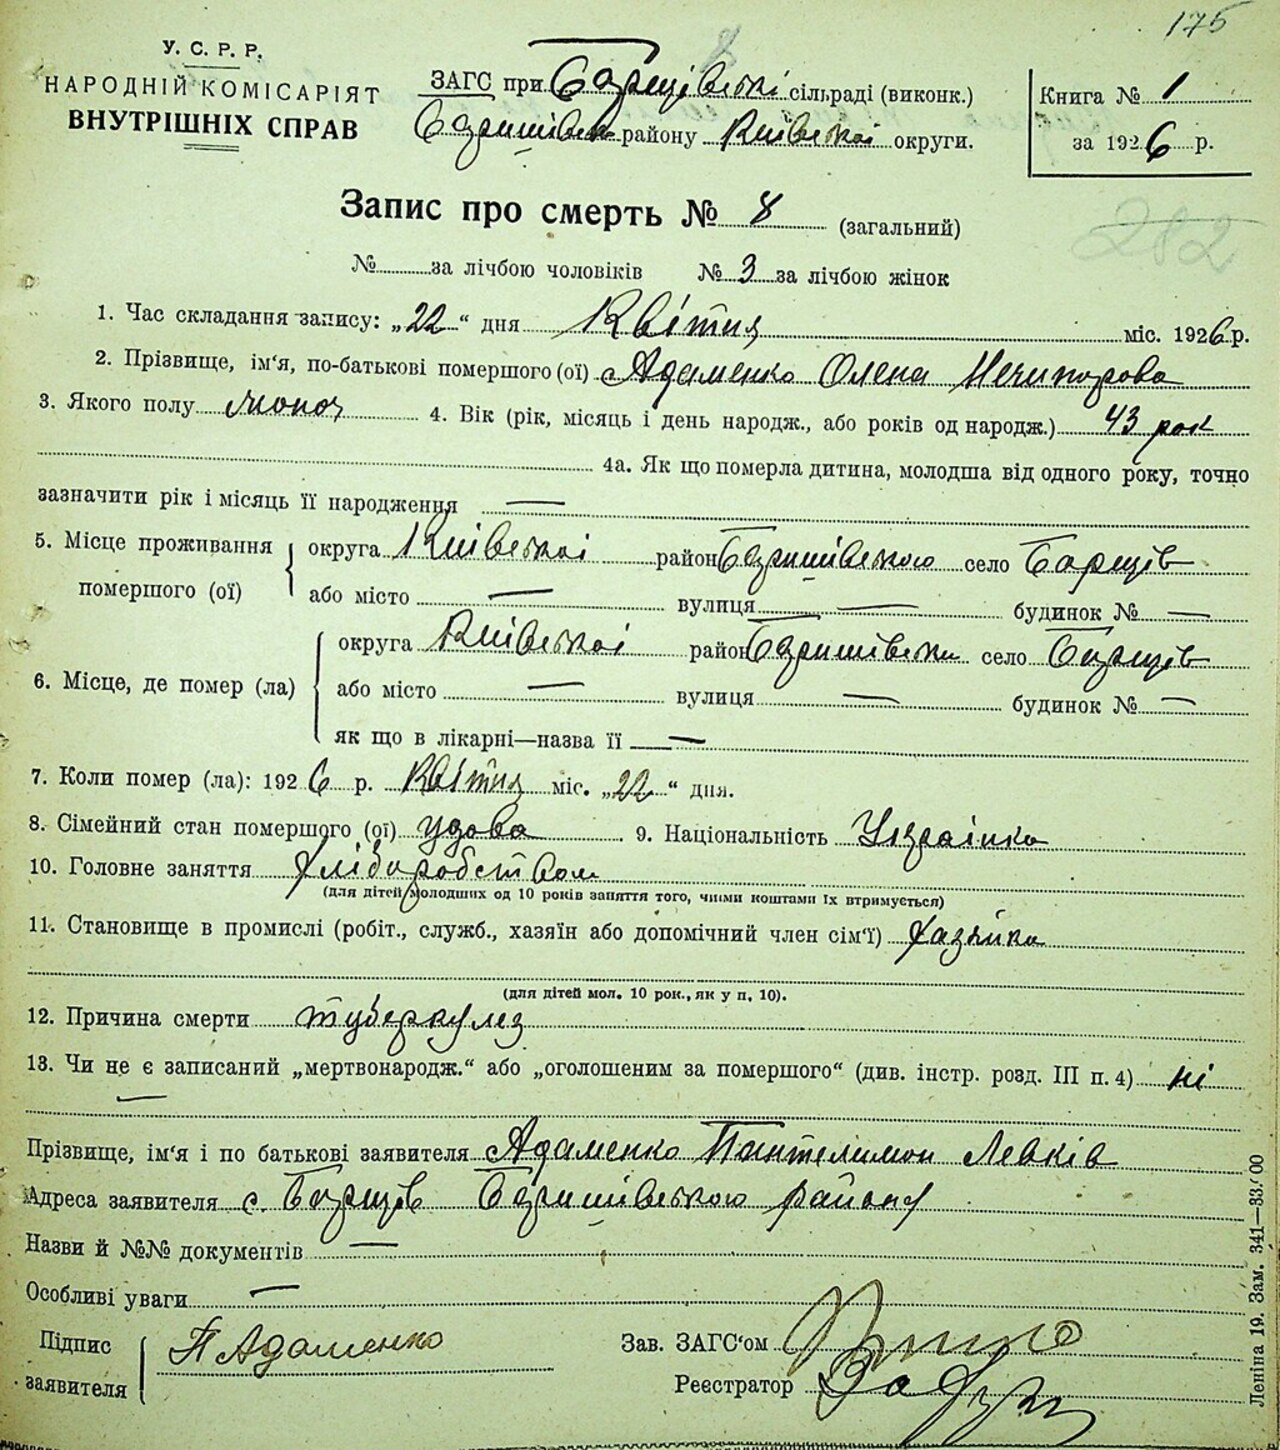 175
У. С. Р. Р.
НАРОДНІЙ КОМІСАРІЯТ
ВНУТРІШНІХ СПРАВ
ЗАГС при Борщівській сільраді (виконк.)
району Київської округи.
Книга № 1
за 1926 р.
Запис про смерть № 8 (загальний)
282
№ за лічбою чоловіків № 3 за лічбою жінок
1. Час складання запису: „22“ дня Квітня міс. 1926 р.
2. Прізвище, ім‘я, по-батькові помершого (ої) Адаменко Олена Нечипорова
3. Якого полу жіноч 4. Вік (рік, місяць і день народж., або років од народж.) 43 рок
4а. Як що померла дитина, молодша від одного року, точно
зазначити рік і місяць її народження —
5. Місце проживання помершого (ої) округа Київської район Баришівського село Борщів
або місто — вулиця — будинок № —
6. Місце, де помер (ла) округа Київської район село Борщів
або місто — вулиця — будинок № —
як що в лікарні—назва її —
7. Коли помер (ла): 1926 р. Квітня міс. „22“ дня.
8. Сімейний стан помершого (ої) удова 9. Національність Українка
10. Головне заняття хліборобством
(для дітей молодших од 10 років заняття того, чиїми коштами їх втримується)
11. Становище в промислі (робіт., служб., хазяїн або допомічний член сім‘ї) Хазяйка
(для дітей мол. 10 рок., як у п. 10).
12. Причина смерти туберкульоз
13. Чи не є записаний „мертвонародж.“ або „оголошеним за помершого“ (див. інстр. розд. III п. 4) ні
—
Прізвище, ім‘я і по батькові заявителя Адаменко Пантелимон Левків
Адреса заявителя с. Борщів Баришівського району
Назви й №№ документів —
Особливі уваги —
Підпис заявителя П Адаменко
Зав. ЗАГС‘ом
Реєстратор
Леніна 19. Зам. 341—83.000